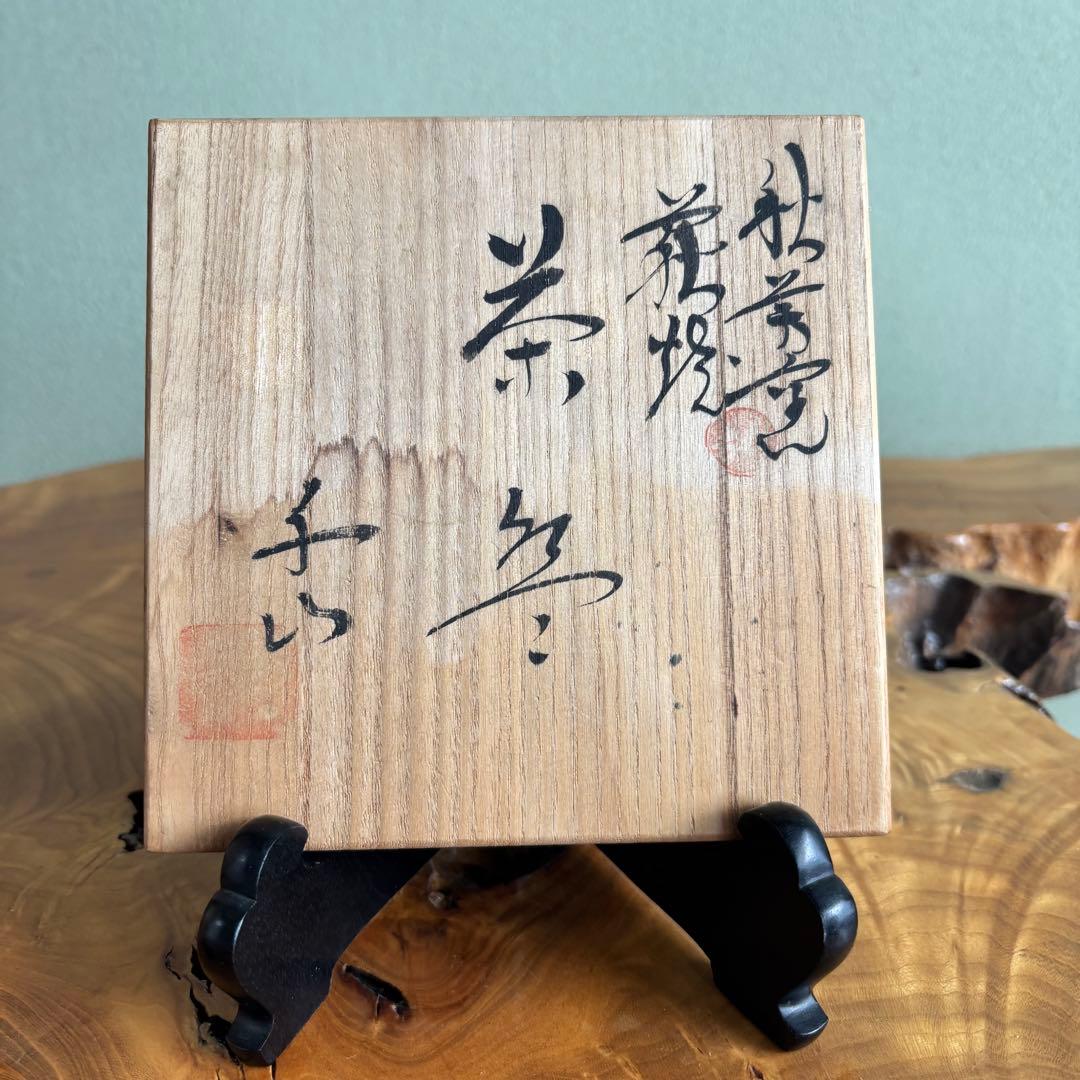 秋芳窯
萩焼
茶盌
千山